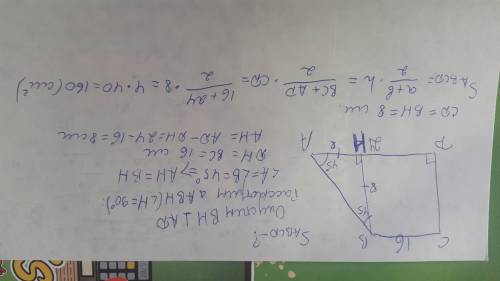 S_ABCD-?
Опустим BH ⊥ AD
Рассмотрим △ABH (∠H=90°):
∠A=∠B=45° ⇒ AH=BH
DH = BC = 16 см
AH = AD-DH=24-16=8 см
CD = BH = 8 см
S_ABCD = a+b/2 · h = BC+AD/2 · CD = 16+24/2 · 8 = 4 · 40 = 160 (см²)
C 16 B
45
8
45
D 24 H 8 A